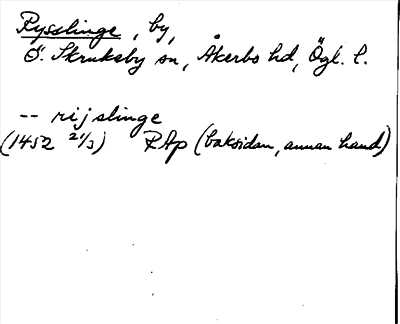 Rysslinge, by,
Ö. Skruksby sn, Åkerbo hd, Ögl. l.
-- rijslinge
(1452 21/3) RAp (baksidan, annan hand)